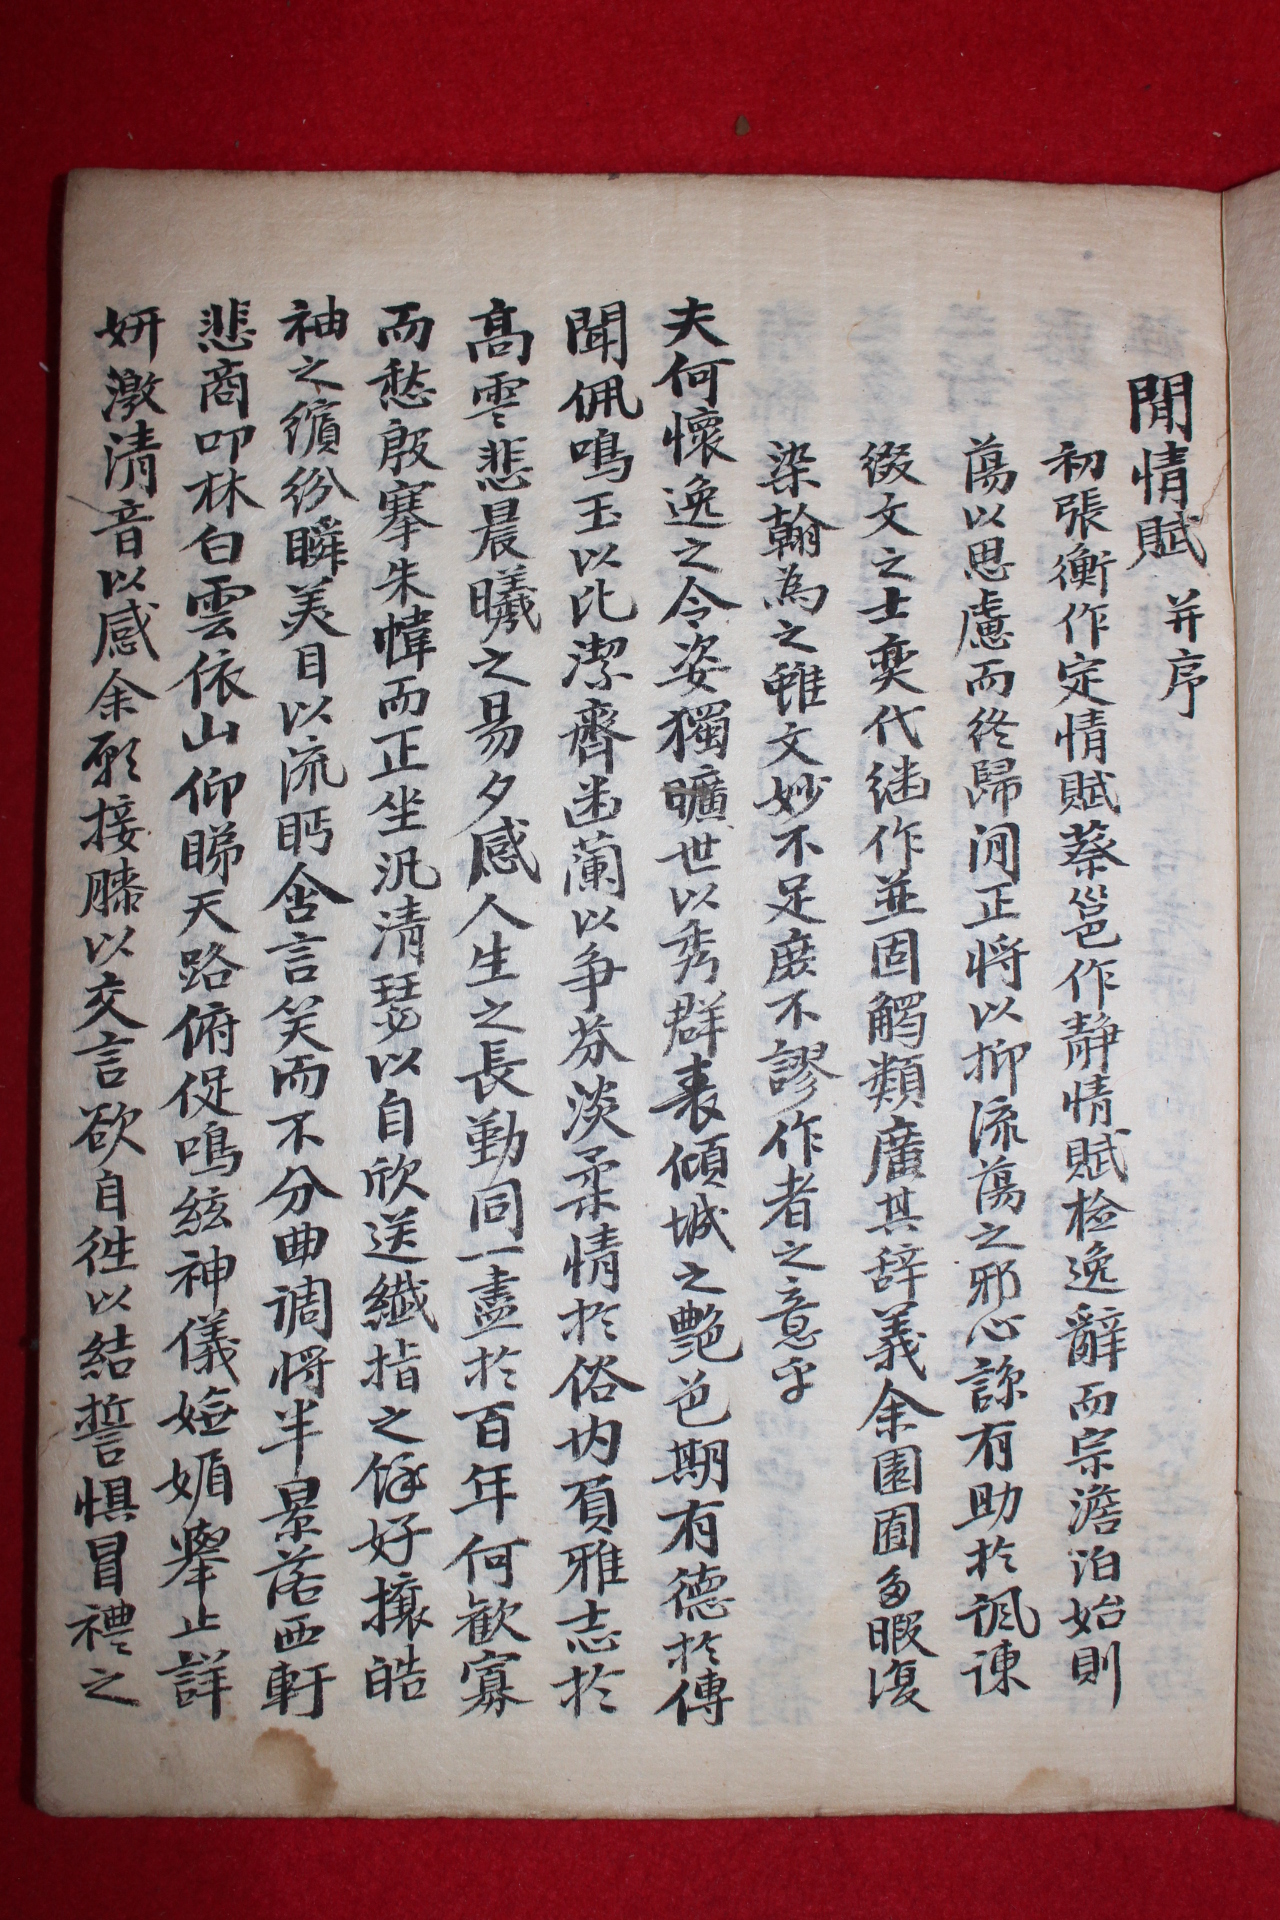 閒情賦 并序
初張衡作定情賦蔡邕作靜情賦檢逸辭而宗澹泊始則
蕩以思慮而終歸閒正將以抑流蕩之邪心諒有助於諷諫
綴文之士奕代継作並固觸類廣其辞義余園閭多暇復
染翰為之雖文妙不足庶不謬作者之意乎
夫何懷逸之令姿獨曠世以秀群表傾城之艶色期有德於傳
聞佩鳴玉以比潔齊幽蘭以争芬淡柔情於俗内負雅志於
高雲悲晨曦之易夕感人生之長勤同一盡於百年何歡寡
而愁殷搴朱幃而正坐汎清瑟以自欣送纖指之餘好攘皓
袖之繽紛瞬美目以流眄含言笑而不分曲调将半景落西軒
悲商叩林白雲依山仰睇天路俯促鳴絃神儀嫵媚舉止詳
妍激清音以感余願接膝以交言欲自往以結誓惧冒禮之